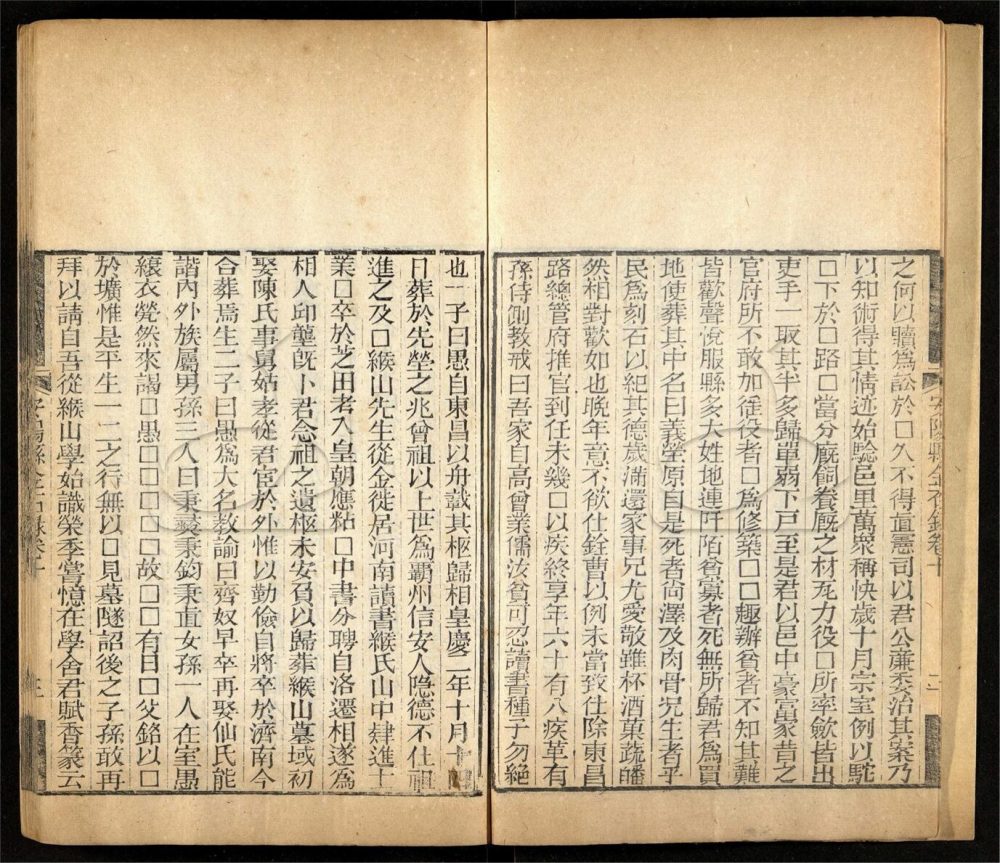 之何以贖爲訟於囗久不得直憲司以君公亷委治其案乃
以知術得其情述始驗邑里萬衆稱快歲十月宗室例以駝
囗下於囗路囗當分厩飼養厩之材瓦力役囗所率斂皆出
吏手一取其半多歸單弱下戸至是君以邑中豪富家昔之
官府所不敢加徭役者囗爲修築囗囗趣辦貧者不知其難
皆歡聲悅服縣多大姓地連阡陌貧寡者死無所歸君爲買
地使葬其中名曰義塋原自是死者尚澤及肉骨况生者乎
民爲刻石以紀其德歲滿還家事兄尤愛敬雖杯酒菓蔬皤
然相對歡如也晩年意不欲仕銓曹以例未當致仕除東昌
路總管府推官到任未幾囗以疾終享年六十有八疾革有
孫侍側教戒曰吾家自高曾業儒汝貧可忍讀書種子勿絶
安陽縣金石錄卷十
二
也一子曰愚自東昌以舟載其柩歸相皇慶二年十月十
日葬於先塋之兆曾祖以上世爲霸州信安人隐德不仕祖
進之及囗緱山先生從金徙居河南讀書緱氏山中肄進士
業囗卒於芝田考入皇朝應粘囗中書分聘自洛遷相遂爲
相人卭壟旣卜君念祖之遺柩未安負以歸葬緱山墓域初
娶陳氏事舅姑孝從君宦於外惟以勤儉自將卒於濟南今
合葬焉生二子曰愚爲大名教諭曰齊奴早卒再娶仙氏能
諧內外族屬男孫三人曰秉彝秉鈞秉直女孫一人在室愚
縗衣煢然來謁囗愚囗囗囗囗故囗囗有日囗父銘以囗
於壙惟是平生一二之行無以囗見墓隧詔後之子孫敢再
拜以請自吾從緱山學始識榮季嘗憶在學舍君賦香篆云
安陽縣金石錄卷十
三